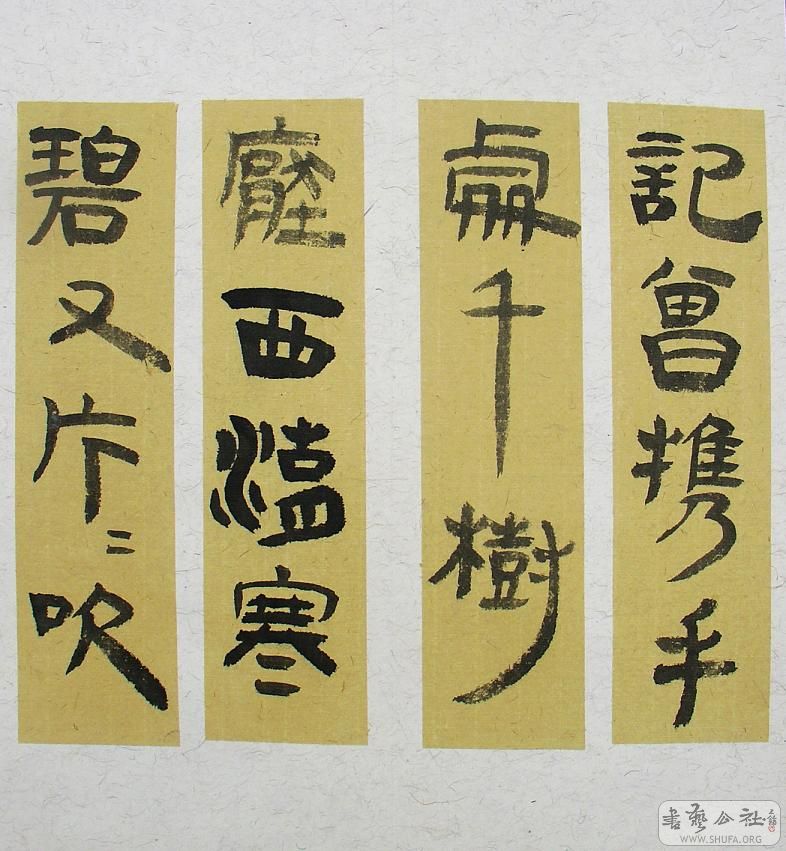 記曾携手
處千樹
壓西湖寒
碧又片〻吹
書藝公社
WWW.SHUFA.ORG